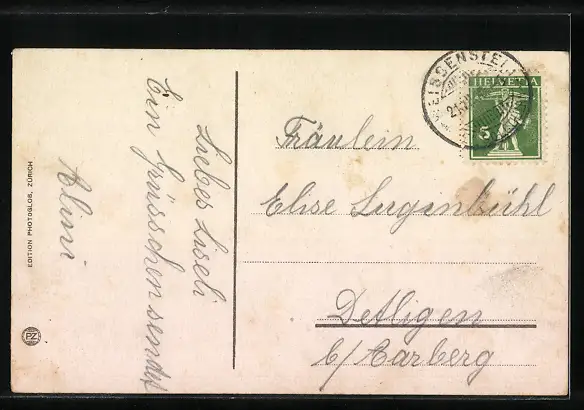 EDITION PHOTOGLOB, ZÜRICH
PZ
Liebes Liseli
Ein Grüsschen sendet
WEISSENSTEIN
HELVETIA
5
Fräulein
Elise Luginbühl
Detligen
b/Aarberg